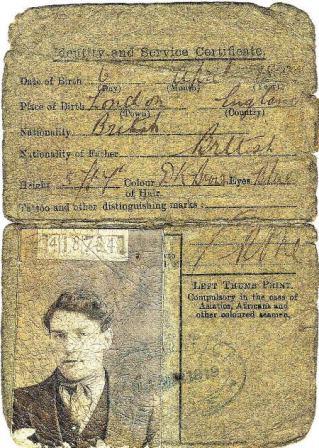 Identity and Service Certificate.
Date of Birth 6 April 1900
(Day) (Month) (Year)
Place of Birth London England
(Town) (Country)
Nationality British
Nationality of Father British
Height 5 ft 7" Colour of Hair Dk Brown Eyes Blue
Tattoo and other distinguishing marks :
LEFT THUMB PRINT.
Compulsory in the case of
Asiatics, Africans and
other coloured seamen.